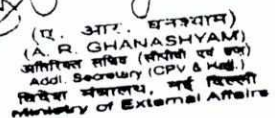 (ए. आर. घनश्याम)
(A. R. GHANASHYAM)
अतिरिक्त सचिव (सीपीवी एवं हज)
Addl. Secretary (CPV & Haj.)
विदेश मंत्रालय, नई दिल्ली
Ministry of External Affairs